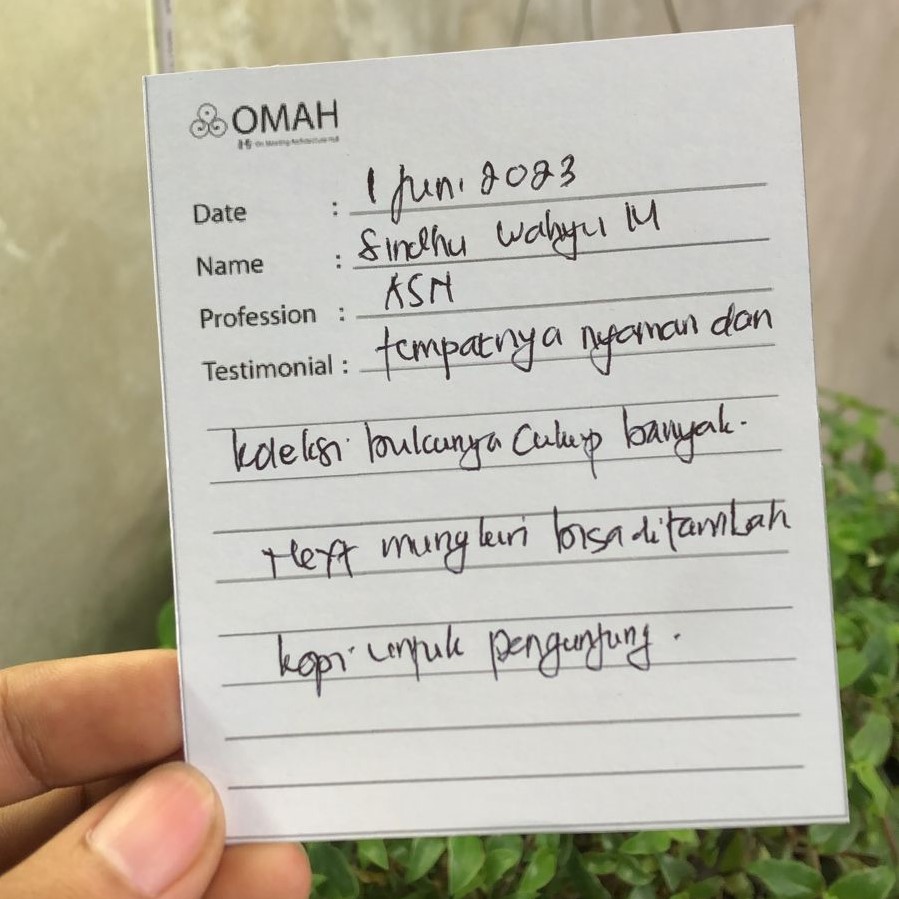 OMAH
Date : 1 Juni 2023
Name : Sindhu Wahyu M
Profession : ASN
Testimonial : tempatnya nyaman dan
koleksi bukunya cukup banyak.
Next mungkin bisa ditambah
kopi untuk pengunjung.